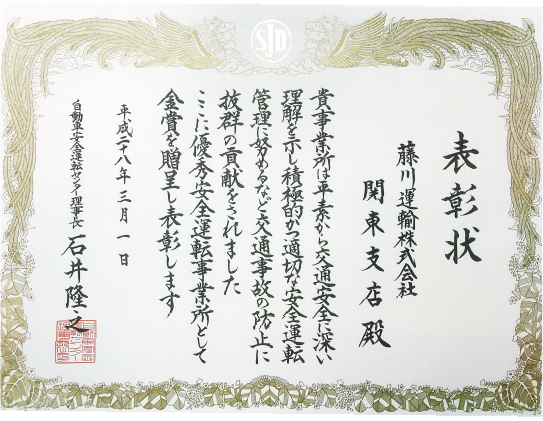 SJD
表彰状
藤川運輸株式会社
関東支店殿
貴事業所は平素から交通安全に深い
理解を示し積極的かつ適切な安全運転
管理に努めるなど交通事故の防止に
抜群の貢献をされました
ここに優秀安全運転事業所として
金賞を贈呈し表彰します
平成二十八年三月一日
自動車安全運転センター理事長 石井隆之